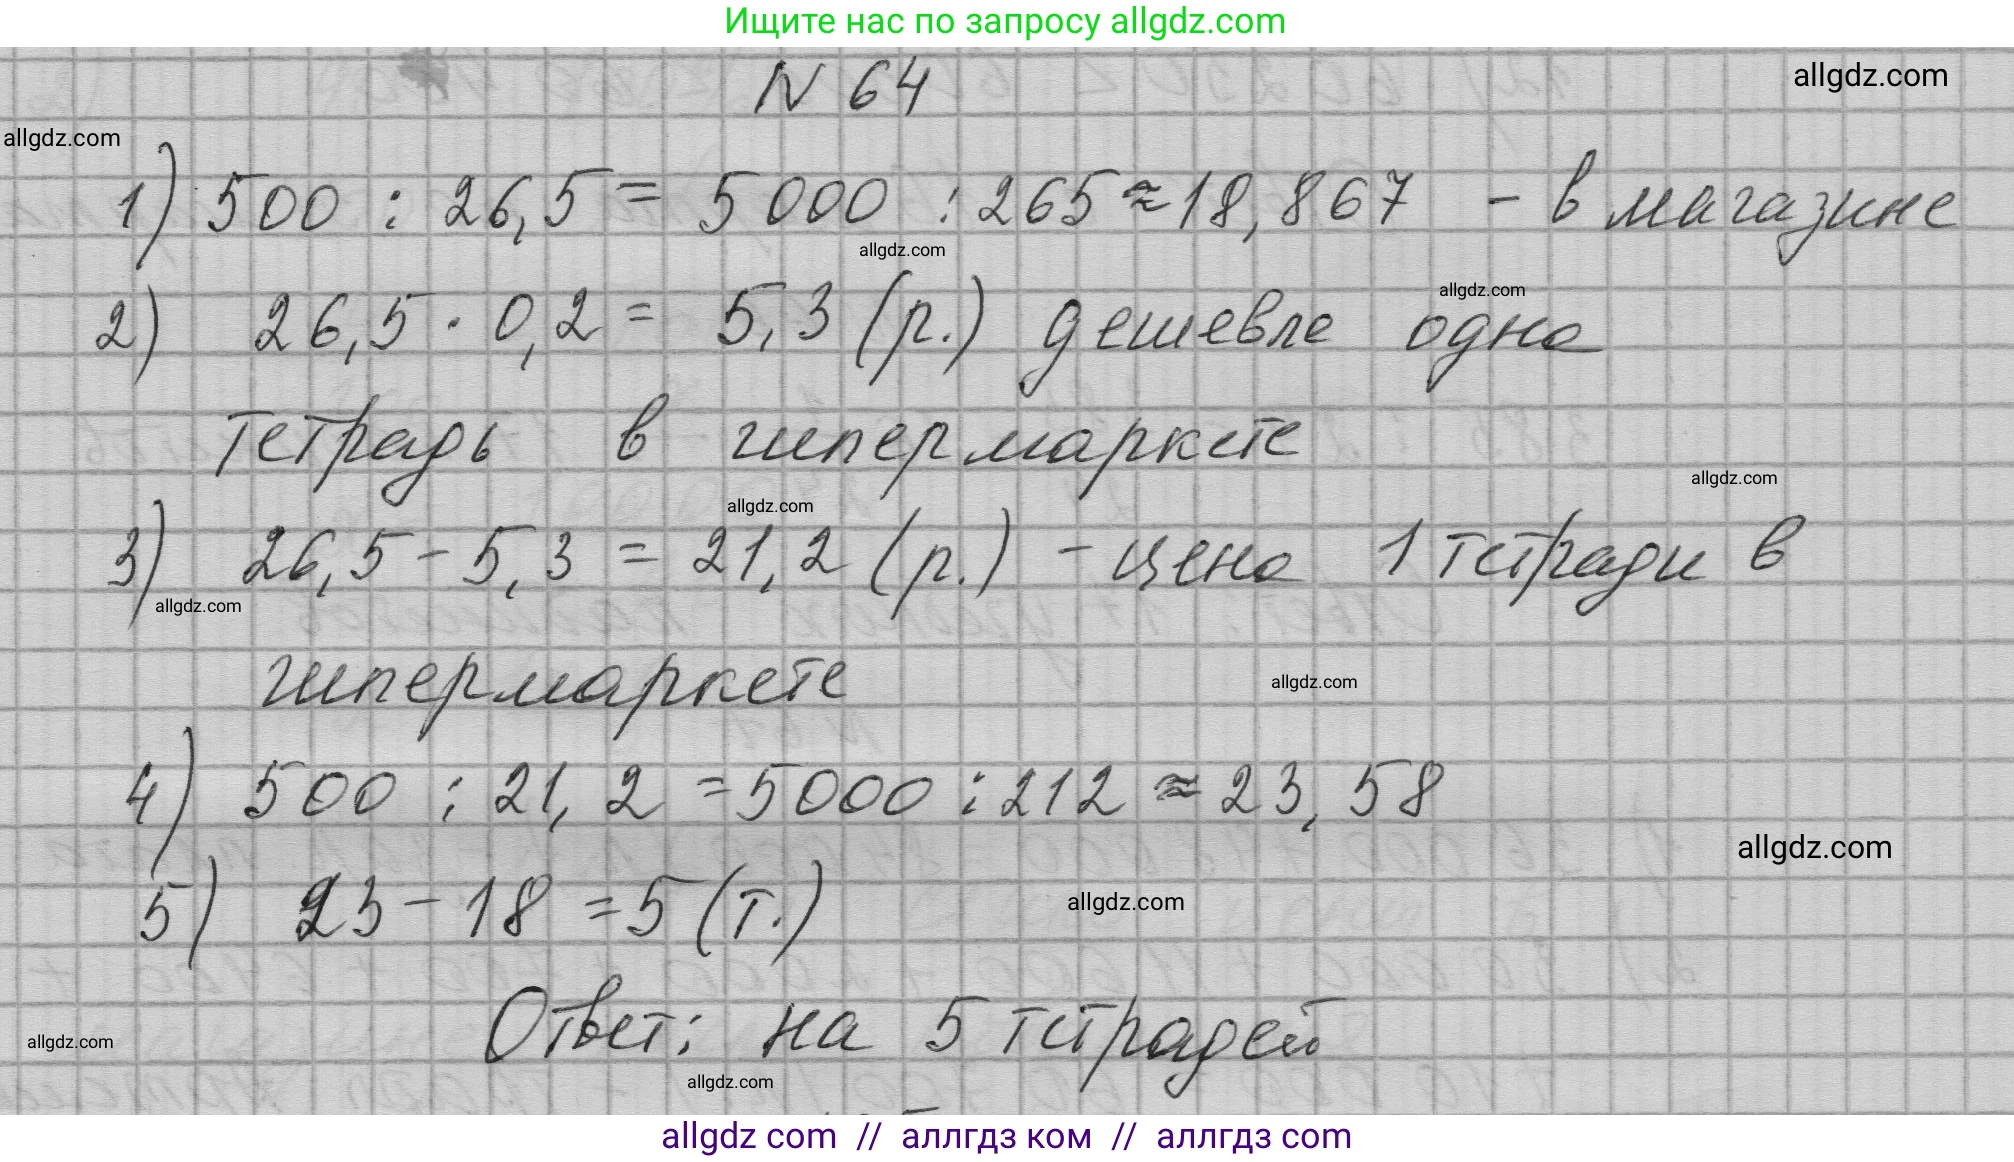 Ищите нас по запросу allgdz.com
N 64
allgdz.com
allgdz.com
1) 500 : 26,5 = 5000 : 265 ≈ 18,867 - в магазине
allgdz.com
2) 26,5 · 0,2 = 5,3 (р.) дешевле одна
allgdz.com
тетрадь в гипермаркете
allgdz.com
allgdz.com
3) 26,5 - 5,3 = 21,2 (р.) - цена 1 тетради в
allgdz.com
гипермаркете
allgdz.com
4) 500 : 21,2 = 5000 : 212 ≈ 23,58
allgdz.com
5) 23 - 18 = 5 (т.)
allgdz.com
Ответ: на 5 тетрадей
allgdz.com
allgdz.com
allgdz com // аллгдз ком // аллгдз com